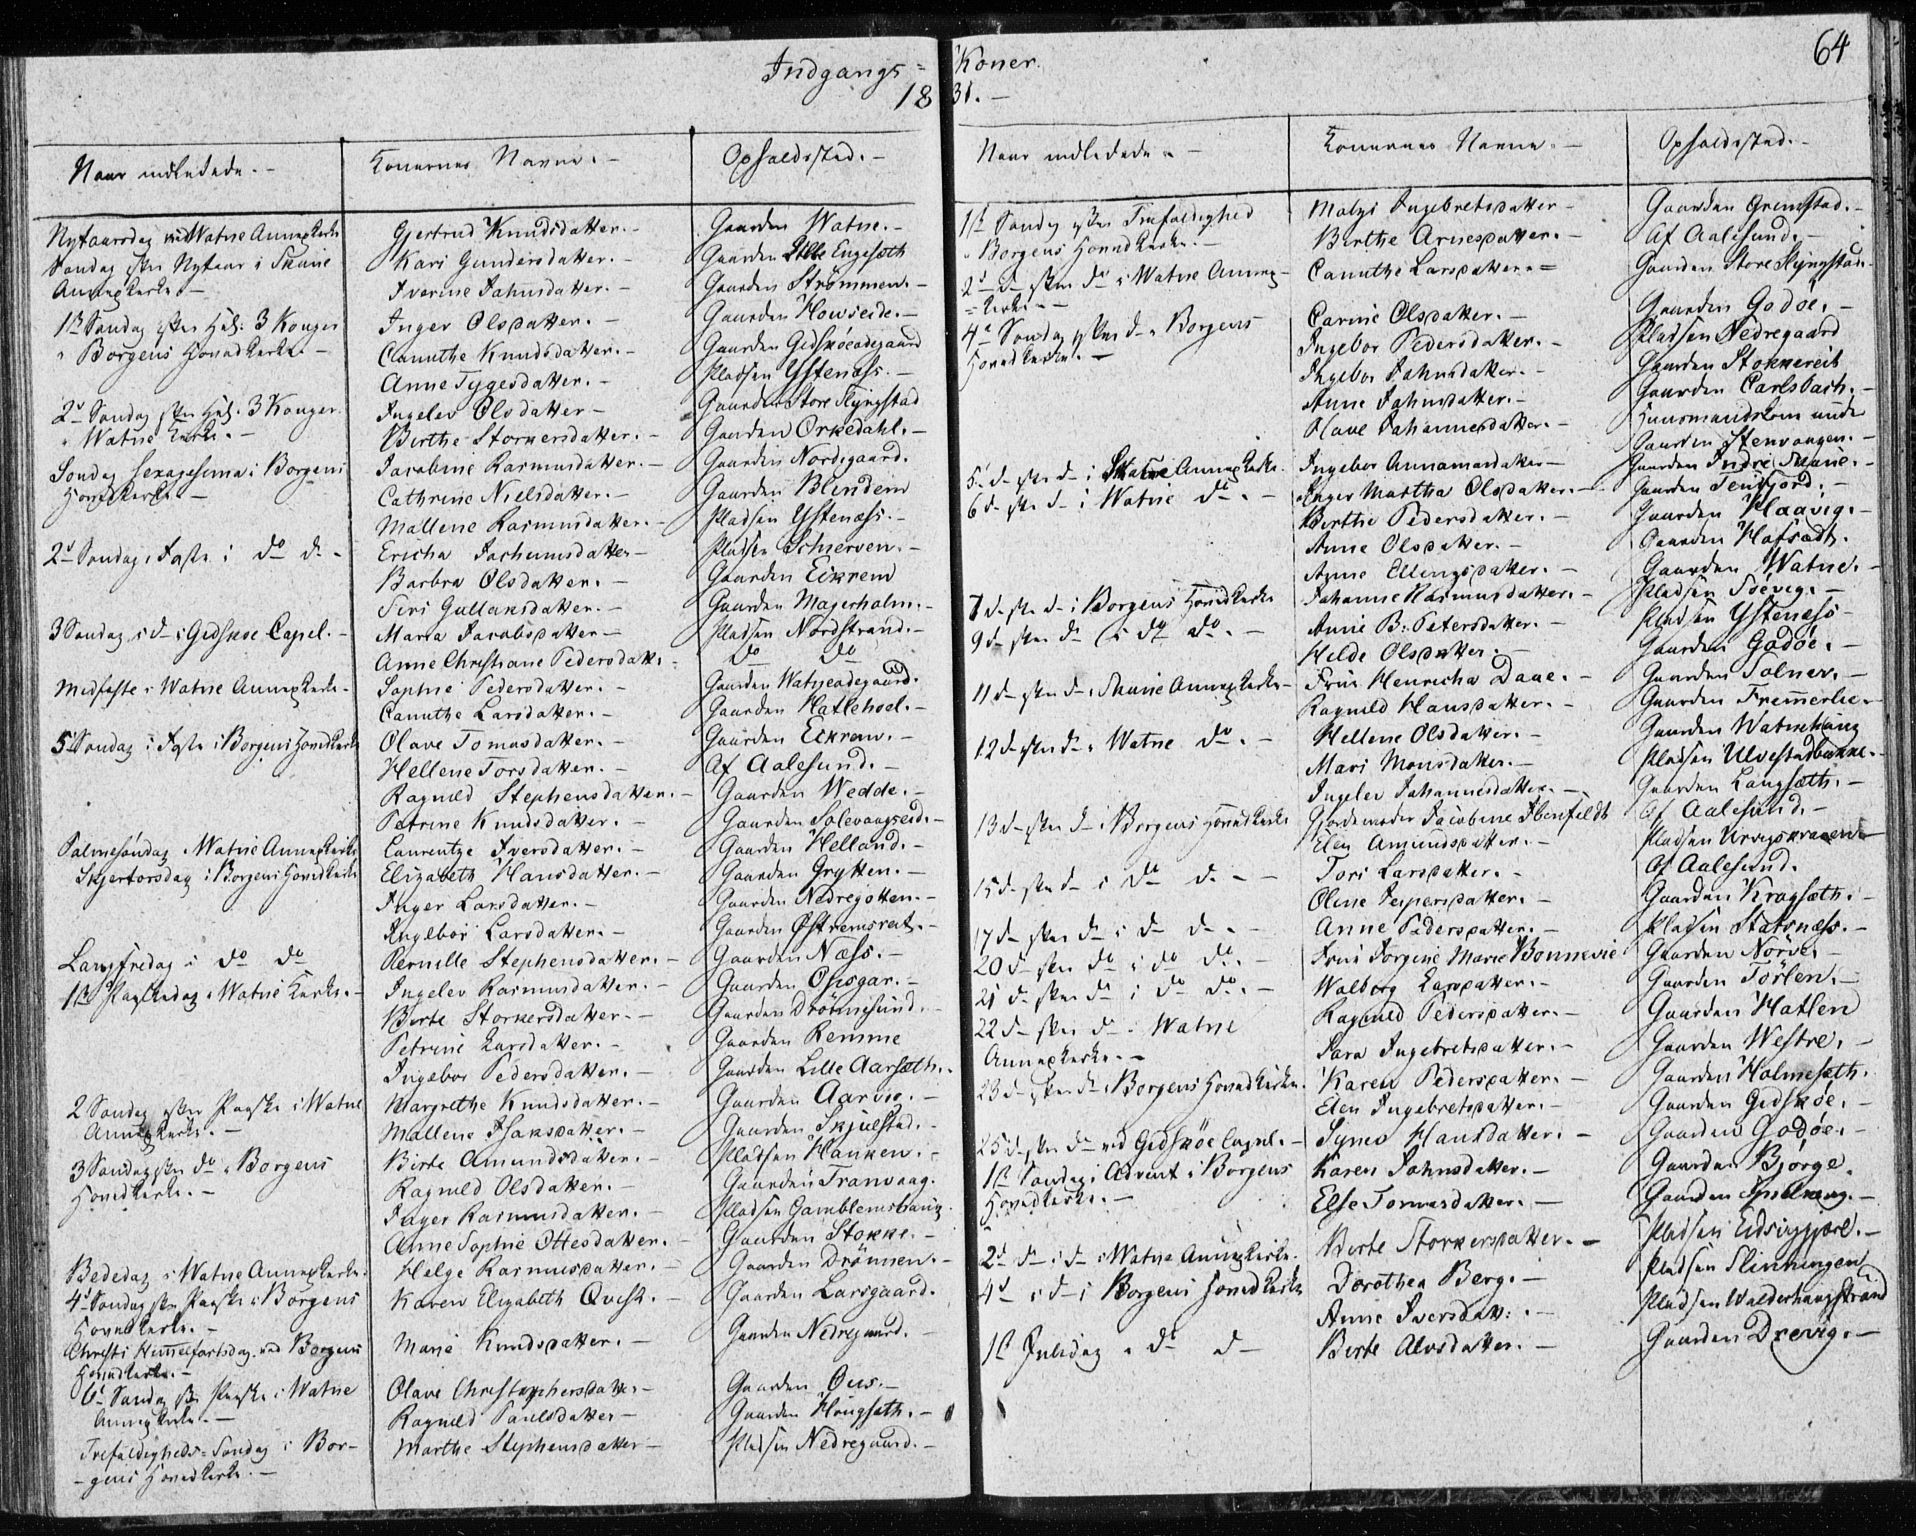 64
Indgangs = Koner.
1831. –
Naar indledede. – Konernes Navne. – Opholdssted. –
Nytaarsdag ved Watne Annexkirke Gjertrud Knudsdatter. – Gaarden Watne. –
Søndag efter Nytaar i Skaue Kari Gundersdatter. – Gaarden Lille Engesæth
Annexkirke. – Iverine Johnsdatter. – Gaarden Strømmen. –
1st Søndag efter Hel: 3 Konger Inger Olsdatter. – Gaarden Howseide. –
i Borgens Hovedkirke. – Canuthe Knudsdatter. – Gaarden Gidskøeadegaard
Anne Tygesdatter. – Pladsen Ystenæss. –
2d Søndag efter Hel. 3 Konger Ingelev Olsdatter – Gaarden Store Slyngstad
i Watne Kirke. – Birthe Storkersdatter. – Gaarden Orkedahl. –
Søndag Sexagesima i Borgens Jacobine Rasmusdatter. – Gaarden Nordegaard.
Hovedkirke. – Cathrine Nielsdatter. – Gaarden Blindem
Mallene Rasmusdatter. – Pladsen Ystenæss. –
2d Søndag i Faste i do d. – Ericha Jochumsdatter – Pladsen Schierven. –
Barbra Olsdatter. – Gaarden Eikrem
Siri Gullaksdatter. – Gaarden Magerholm. –
3 Søndag i d i Gidskøe Capel. – Maria Jacobsdatter – Pladsen Nordstrand. –
Anne Christiane Pedersdatt. do do
Midfaste i Watne Annexkirke. Sophie Pedersdatter. – Gaarden Watneødegaard.
Canuthe Larsdatter. – Gaarden Hatlehoel. –
5 Søndag i Faste i Borgens Hovedkirke Olave Tomasdatter. – Gaarden Eikrem. –
Hellene Torsdatter. – Af Aalesund. –
Ragnild Stephensdatter. – Gaarden Wedde. –
Petrine Knudsdatter. – Gaarden Solevaagseid. –
Palmesøndag i Watne Annexkirke Laurentze Iversdatter. – Gaarden Helland. –
Skjertorsdag i Borgens Hovedkirke Elizabeth Hansdatter. – Gaarden Grytten. –
Inger Larsdatter. – Gaarden Nedregotten. –
Ingebor Larsdatter. – Gaarden Østremsreit. –
Langfredag i do do Pernille Stephensdatter. – Gaarden Næss. –
1st Paaskedag i Watne Kirke. – Ingelev Rasmusdatter. – Gaarden Opsgar. –
Birte Storkersdatter. – Gaarden Drønnesund. –
Petrine Larsdatter. – Gaarden Remme
Ingebor Pedersdatter. – Gaarden Lille Aarsæth. –
2 Søndag efter Paaske i Watne Margrethe Knudsdatter. – Gaarden Aarvi. –
Annexkirke. – Mallene Isaksdatter. – Gaarden Skjelstad. –
3 Søndag efter do i Borgens Birte Amundsdatter. – Pladsen Hanken. –
Hovedkirke. – Ragnild Olsdatter. – Gaarden Tranvaag.
Inger Rasmusdatter. – Pladsen Gamblemshaug
Anne Sophie Ottesdatter. – Gaarden Stokke. –
Bededag i Watne Annexkirke. Helge Rasmusdatter. – Gaarden Drønnen. –
4d Søndag efter Paaske i Borgens Karen Elizabeth Qvist. – Gaarden Larsgaard.
Hovedkirke. –
Christi Himmelfartsdag ved Borgens Marie Knudsdatter. – Gaarden Nedregaard. –
Hovedkirke. –
6d Søndag eft Paaske i Watne Olave Christophersdatt. – Gaarden Ous. –
Annexkirke. – Ragnild Paulsdatter – Gaarden Hougsæth. –
Trefoldigheds-Søndag i Bor- Marthe Stephensdatter – Pladsen Nedregaard. –
-gens Hovedkirke. –
Naar indledede. – Konernes Navne. – Opholdssted. –
1st Søndag efter Trefoldighed Malzi Ingebretsdatter – Gaarden Grimstad. –
i Borgens Hovedkirke. – Birthe Arnesdatter. – Af Aalesund. –
2d d. efter do i Watne Annex- Canuthe Larsdatter. = Gaarden Store Slyngstad.
=kirke. – Carine Olsdatter. – Gaarden Godøe. –
4d Søndag efter d. i Borgens Ingebor Pedersdatter. – Pladsen Nedregaard
Hovedkirke. – Ingebor Johnsdatter. – Gaarden Stokkereit
Anne Johnsdatter. – Gaarden Carlsbach. –
Olave Johannesdatter. – Huusmandskone under
Gaarden Stenvaagen. –
5 d efter d i Skaue Annexkirke Ingebor Annanasdatter – Gaarden Indre Skaue. –
6 d efter d i Watne do. – Inger Martha Olsdatter. – Gaarden Tenfjord. –
Birthe Pedersdatter. – Gaarden Haavig. –
Anne Olsdatter. – Gaarden Hofsæth.
Anne Ellingsdatter. – Gaarden Watne. –
7 d efter d i Borgens Hovedkirke Johanne Rasmusdatter. – Pladsen Søevig. –
9 d efter do i do do. – Anne B: Petersdatter. – Pladsen Ystenæss –
Helde Olsdatter. – Gaarden Godøe. –
11 d efter d i Skaue Annexkirke – Frue Henricha Daae. – Gaarden Solnør. –
Ragnild Hansdatter. – Gaarden Fremmerlie. –
12 d efter d i Watne do. – Hellene Olsdatter. – Gaarden Watnehaug
Mari Monsdatter. – Pladsen Ulvestadbakke. –
Ingelev Johannesdatter. – Gaarden Langsæth. –
13 d efter d i Borgens Hovedkirke Gjordemoder Jacobine Ibenfeldt Af Aalesund. –
Elen Amundsdatter. – Pladsen Krogskraaen. –
15 d efter d i do d. – Tori Larsdatter. – Af Aalesund.
Oline Jespersdatter. – Gaarden Kragsæth. –
17 d efter d i d d. – Anne Pedersdatter. – Pladsen Statsnæss. –
20 d efter do i do do. – Frue Jorgine Marie Bonnevie Gaarden Nörve. –
21 d efter do i do do. – Walborg Larsdatter. – Gaarden Törlen. –
22 d efter d. i Watne Ragnild Pedersdatter. – Gaarden Hatlen
Annexkirke. – Sara Ingebretsdatter. – Gaarden Westre. –
23 d efter d i Borgens Hovedkirke. Karen Pedersdatter. – Gaarden Holmesæth. –
Elen Ingebretsdatter. – Gaarden Gidskøe. –
25 d efter do ved Gidskøe Capel. – Synov Hansdatter. – Gaarden Godøe. –
1st Søndag i Advent i Borgens Karen Johnsdatter. – Gaarden Bjørge.
Hovedkirke. – Else Tormosdatter. – Gaarden
2d d. i d. i Watne Annexkirke. Birte Storkersdatter. – Pladsen
4d i d i Borgens Hovedkirke Dorothea Berg. – Pladsen Slinningen
Anne Iversdatt: – Pladsen Walderhaugstrand
1st Juledag i do d Birte Alvsdatter. – Gaarden Drevig. –